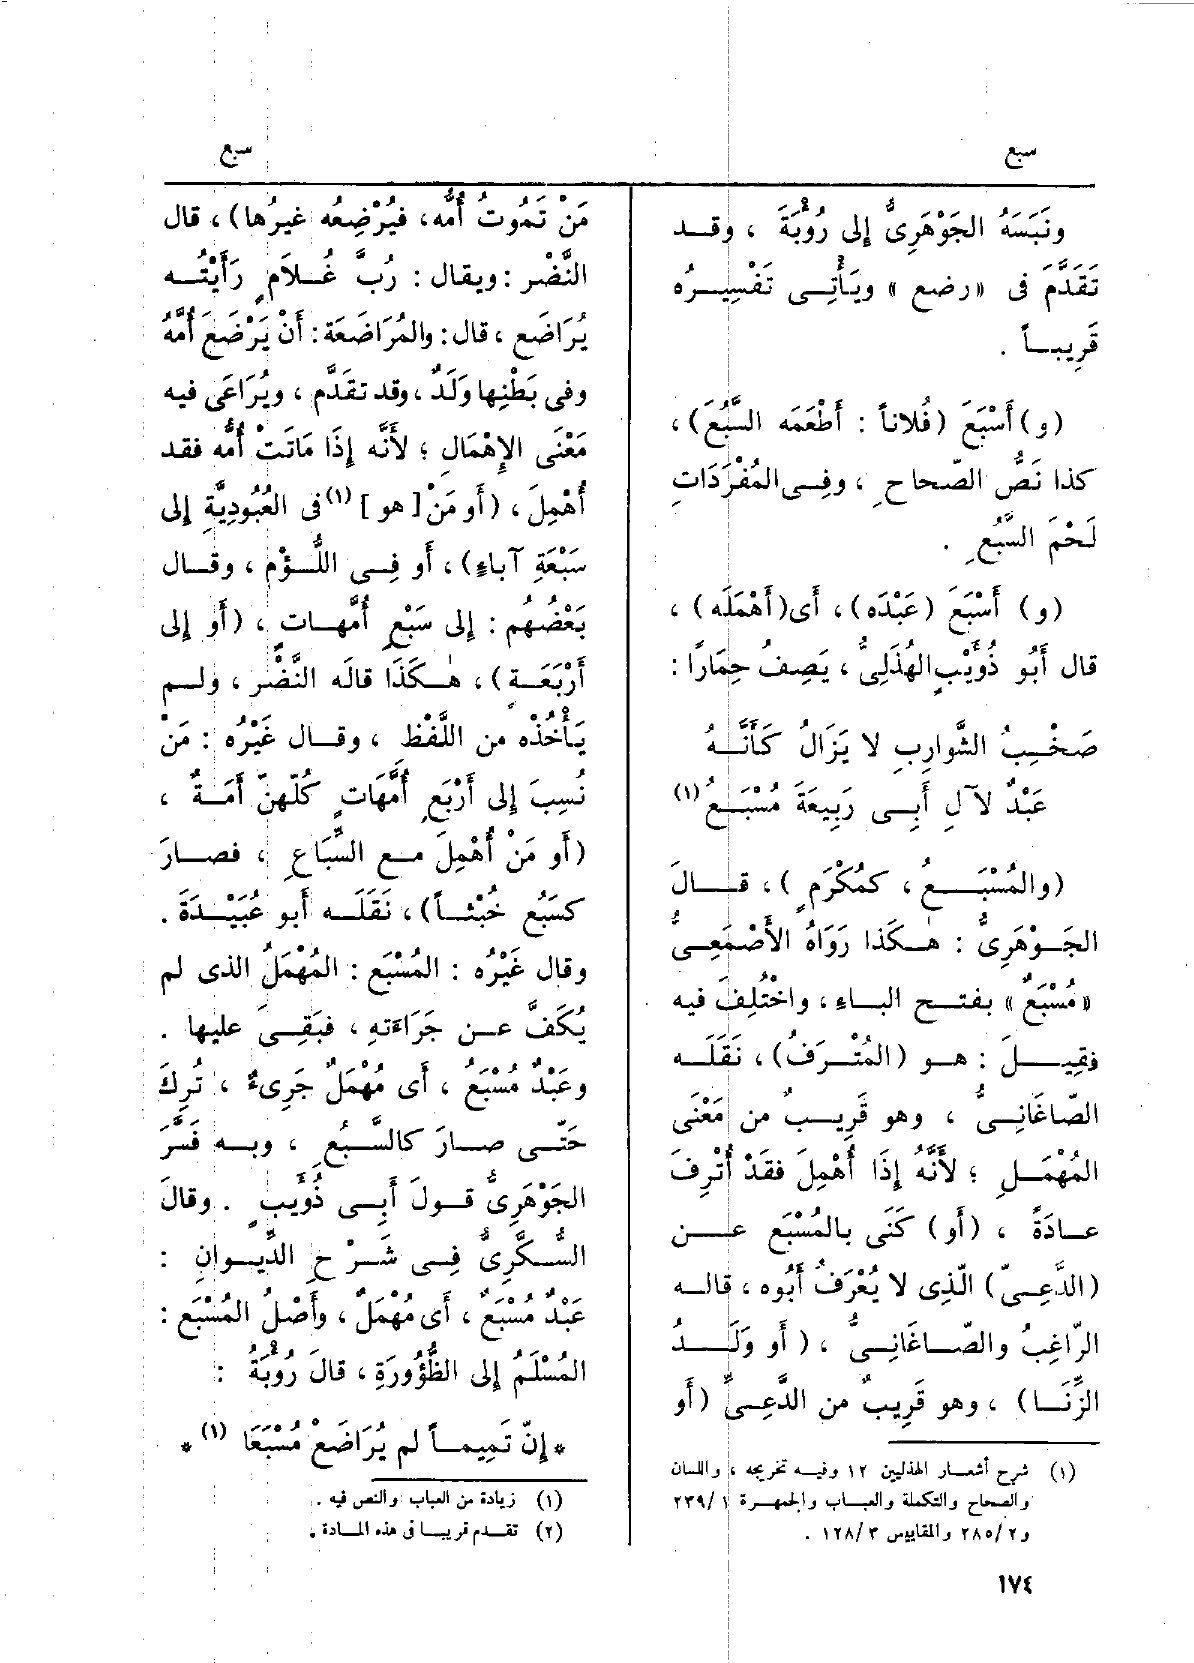 سبع
سبع
ونَبَسَهُ الجَوْهَرِىُّ إلى رُؤْبَةَ ، وقـد
تَقَدَّمَ فى «رضع» ويَأْتِـى تَفْسِيرُه
قَرِيبـاً .
(و) أَسْبَعَ (فُلاناً : أَطْعَمَه السَّبُعَ) ،
كذا نَصُّ الصّحاحِ ، وفِـى المُفْرَدَاتِ
لَحْمَ السَّبُعِ .
(و) أَسْبَعَ (عَبْدَه) ، أَى (أَهْمَلَه) ،
قال أَبُو ذُؤَيْبٍ الهُذَلِىُّ ، يَصِفُ حِمَارًا :
صَخِبُ الشَّوارِبِ لا يَزَالُ كَأَنَّـهُ
عَبْدٌ لآلِ أَبِـى رَبِيعَةَ مُسْبَـعُ (١)
(والمُسْبَـعُ ، كمُكْرَمٍ ) ، قـالَ
الجَـوْهَرِىُّ : هٰـكَذا رَوَاهُ الأَصْمَعِـىُّ
«مُسْبَعٌ» بفتـح البـاءِ ، واخْتُلِفَ فيه
فقِيـلَ : هـو (المُتْـرَفُ) ، نَقَلَـه
الصّاغَانِـىُّ ، وهو قَرِيـبٌ من مَعْنَى
المُهْمَـلِ ؛ لأَنَّهُ إِذَا أُهْمِلَ فقَدْ أُتْرِفَ
عـادَةً ، (أَو) كَنَى بالمُسْبَعِ عـن
(الدَّعِـىّ) الَّذِى لا يُعْرَفُ أَبُوه ، قالـه
الرّاغِبُ والصّـاغَانِـىُّ ، (أَو وَلَـدُ
الزِّنَـا) ، وهو قَرِيبٌ من الدَّعِـىِّ (أَو
(١) شرح أشعـار الهذليين ١٢ وفيـه تخريجه ، واللسان
والصحاح والتكملة والعبـاب والجمهـرة ١/٢٣٩
و٢/٢٨٥ والمقاييس ٣/١٢٨ .
مَنْ تَمُوتُ أُمُّه ، فيُرْضِعُه غيرُها) ، قال
النَّضْر : ويقال : رُبَّ غُـلَامٍ رَأَيْتُـه
يُرَاضَع ، قال : والمُرَاضَعَة : أَنْ يَرْضَعَ أُمَّهُ
وفى بَطْنِها وَلَدٌ ، وقد تقَدَّم ، ويُرَاعَى فيه
مَعْنَى الإِهْمَالِ ؛ لأَنَّه إِذَا مَاتَتْ أُمُّه فقد
أُهْمِلَ ، (أَو مَنْ [هو] (١) فى العُبُودِيَّةِ إِلى
سَبْعَةِ آباءٍ) ، أَو فِـى اللُّـؤْمِ ، وقـال
بَعْضُهُم : إلى سَبْعِ أُمَّهـاتٍ ، (أَو إِلى
أَرْبَعَـةٍ) ، هٰـكَذَا قالَه النَّضْـر ، ولـم
يَأْخُذْه من اللَّفْظِ ، وقـال غَيْرُه : مَنْ
نُسِبَ إلى أَرْبَعِ أُمَّهَاتٍ كُلّهنّ أَمَـةٌ ،
(أَو مَنْ أُهْمِلَ مـع السِّبَاعِ ، فصـارَ
كسَبُعٍ خُبْثـاً) ، نَقَلَـه أَبو عُبَيْـدَةَ .
وقال غَيْرُه : المُسْبَع : المُهْمَلُ الذى لم
يُكَفَّ عـن جَرَاءَتهِ ، فبَقِـىَ عليها .
وعَبْدٌ مُسْبَعٌ ، أَى مُهْمَلٌ جَرِىءٌ ، تُرِكَ
حَتّـى صـارَ كالسَّبُعِ ، وبـه فَسَّرَ
الجَوْهَرِىُّ قـولَ أَبِـى ذُؤَيبٍ . وقالَ
السُّـكَّرِىُّ فِـى شَـرْحِ الدِّيـوانِ :
عَبْدٌ مُسْبَعٌ ، أَى مُهْمَلٌ ، وأَصْلُ المُسْبَع :
المُسْلَمُ إلى الظُّؤُورَةِ ، قالَ رُؤْبَةُ :
* إِنّ تَمِيمـاً لم يُرَاضَعْ مُسْبَعَا (١) *
(١) زيادة من العباب والنص فيه .
(٢) تقـدم قريبـا فى هذه المـادة .
١٧٤